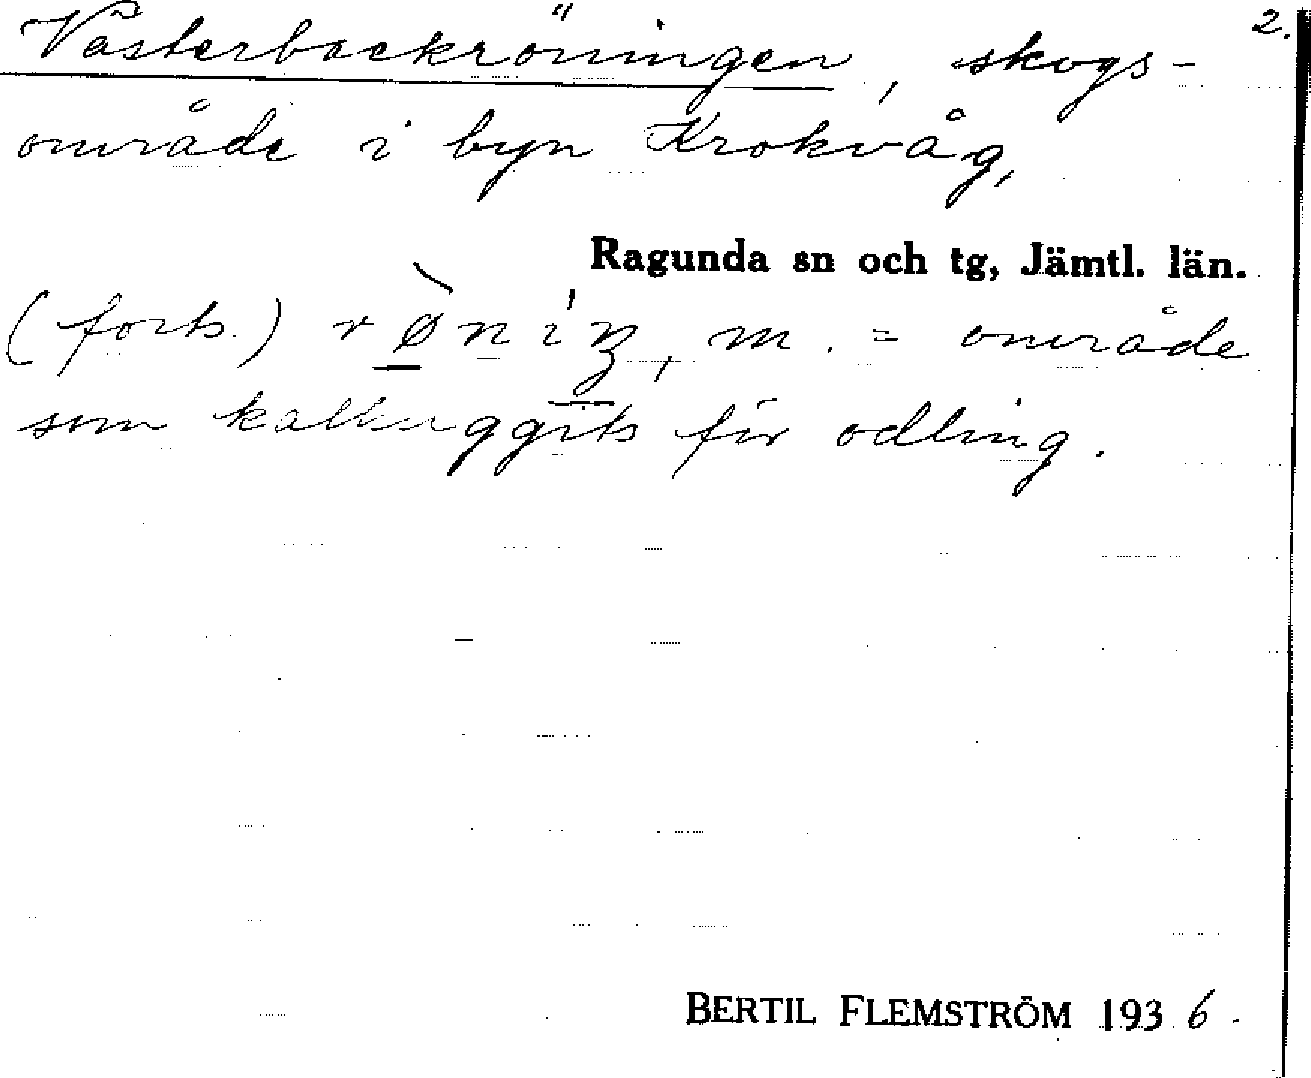 2.
Västerbackröningen, skogs-
område i byn Krokvåg,
Ragunda sn och tg, Jämtl. län.
(forts.) m. = område
som kalhuggits för odling.
BERTIL FLEMSTRÖM 1936.